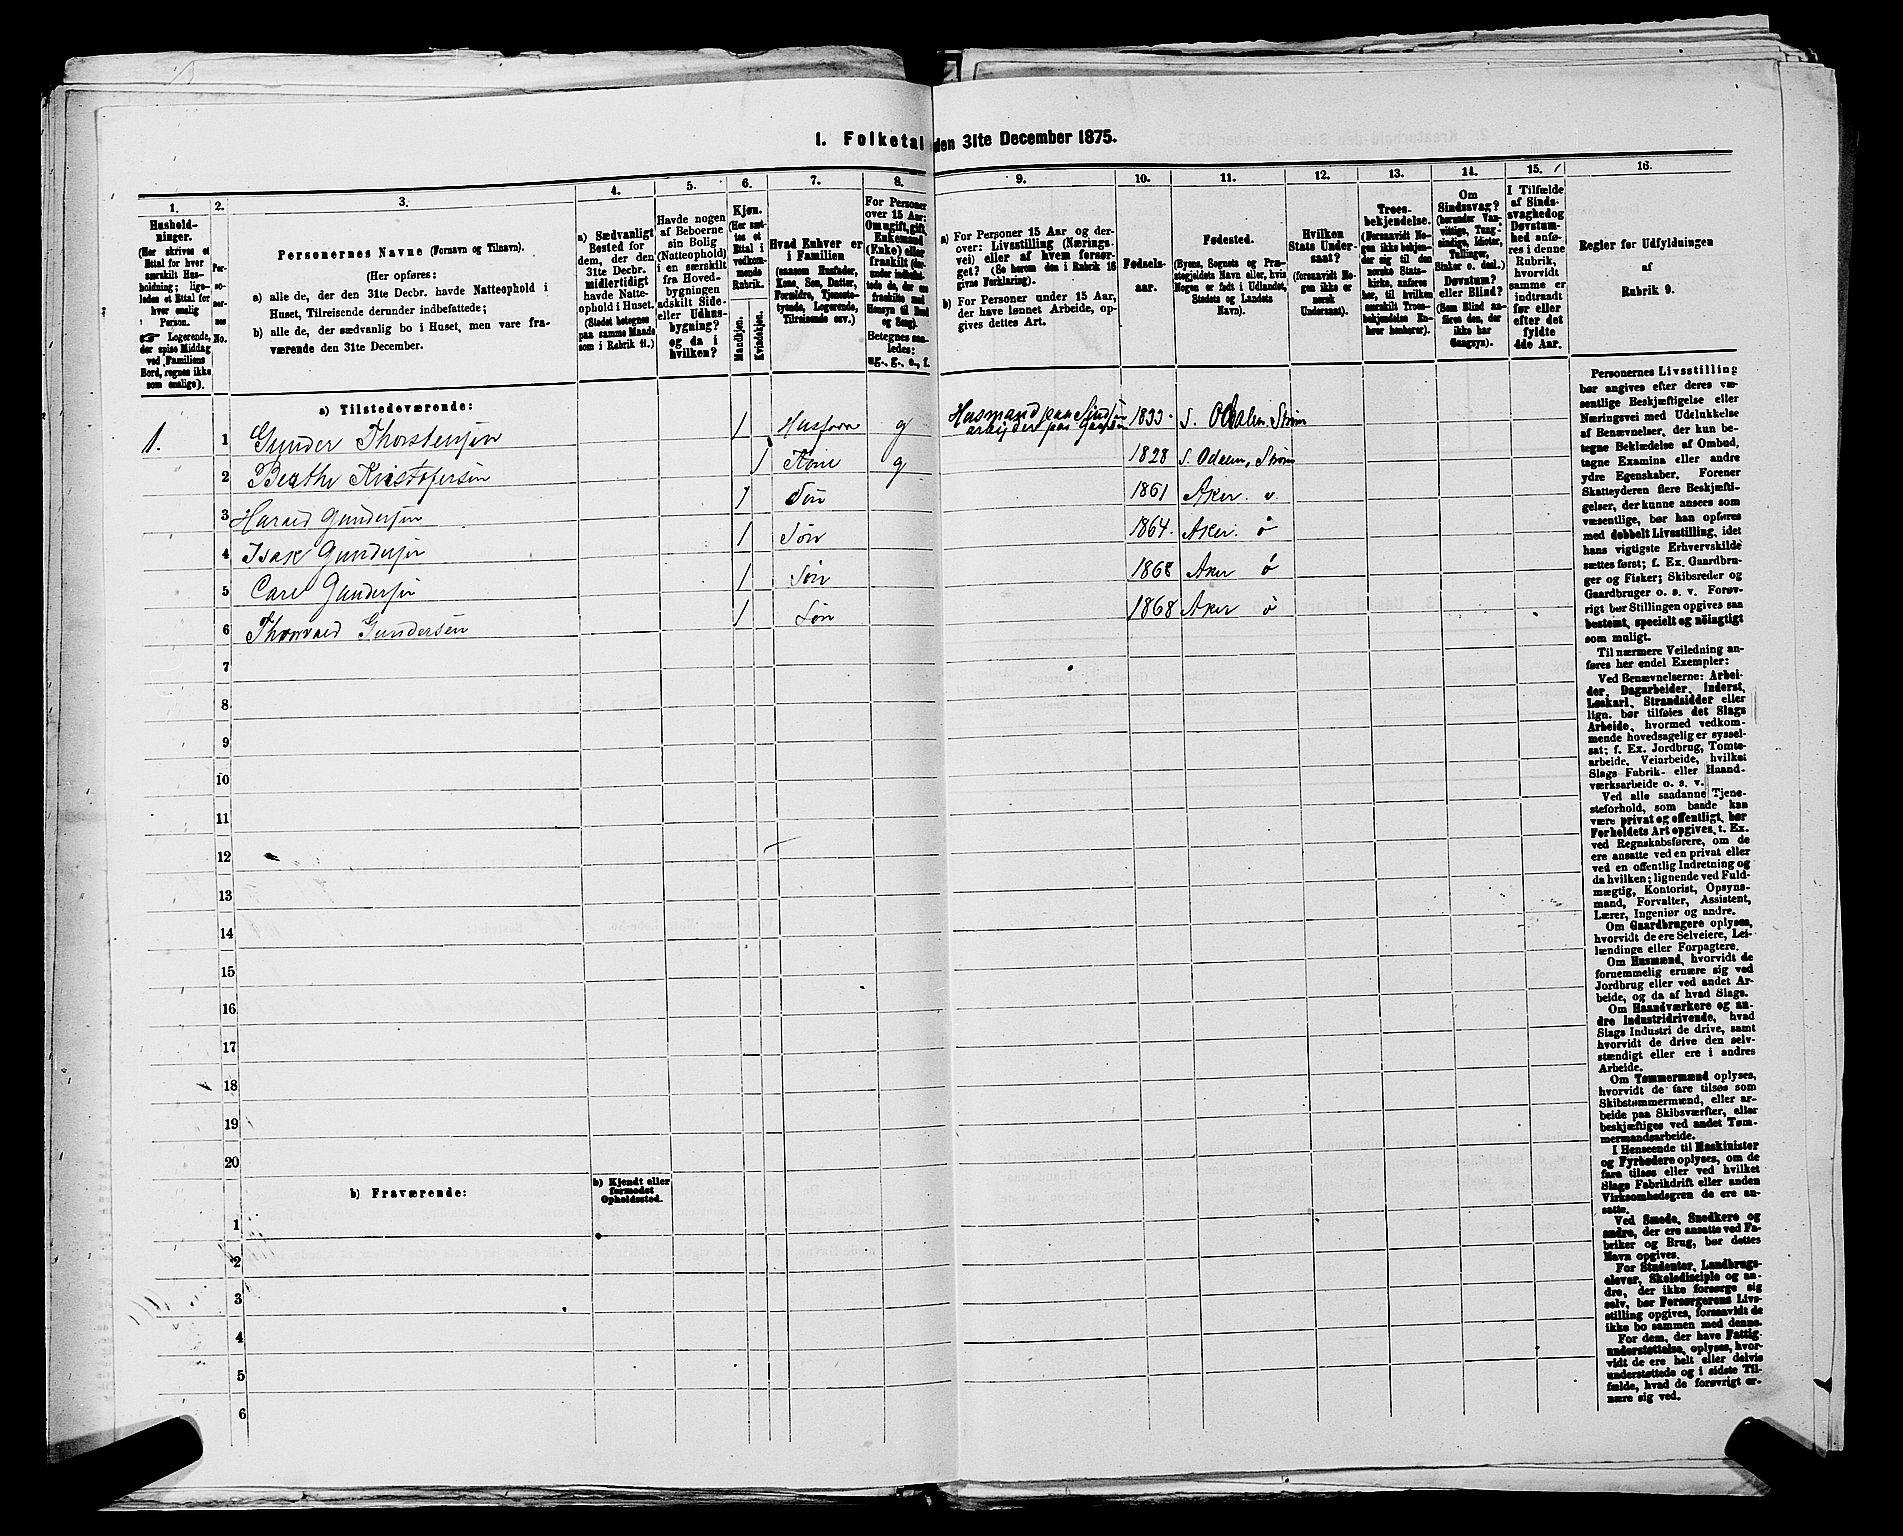 1. Folketal den 31te December 1875.
1.
Hushold-
ninger.
(Her skrives et
Ettal for hver
særskilt Hus-
holdning; lige-
ledes et Ettal for
hver enslig
Person.
☞ Logerende,
der spise Middag
ved Familiens
Bord, regnes ikke
som enslige).
2.
Per-
so-
ner-
nes
No.
3.
Personernes Navne (Fornavn og Tilnavn).
(Her opføres:
a) alle de, der den 31te Decbr. havde Natteophold i
Huset, Tilreisende derunder indbefattede;
b) alle de, der sædvanlig bo i Huset, men vare fra-
værende den 31te December.
4.
a) Sædvanligt
Bosted for
dem, der den
31te Decbr.
midlertidigt
havde Natte-
ophold i Huset.
(Stedet betegnes
paa samme Maade
som i Rubrik 11.)
5.
Havde nogen
af Beboerne
sin Bolig
(Natteophold)
i en særskilt
fra Hoved-
bygningen
adskilt Side-
eller Udhus-
bygning?
og da i
hvilken?
6.
Kjøn.
(Her sæt-
tes et
Ettal i
vedkom-
mende
Rubrik.
Mandkjøn.
Kvindekjøn.
7.
Hvad Enhver er
i Familien
(saasom Husfader,
Kone, Søn, Datter,
Forældre, Tjeneste-
tyende, Logerende,
Tilreisende osv.)
8.
For Personer
over 15 Aar:
Om ugift, gift,
Enkemand
(Enke) eller
fraskilt
Betegnes saa-
ledes:
ug., g., e., f.
9.
a) For Personer 15 Aar og der-
over: Livsstilling (Nærings-
vei) eller af hvem forsør-
get? (Se herom den i Rubrik 16
givne Forklaring).
b) For Personer under 15 Aar,
der have lønnet Arbeide, op-
gives dettes Art.
10.
Fødsels-
aar.
11.
Fødested.
(Byens, Sognets og Præ-
stegjeldets Navn eller, hvis
Nogen er født i Udlandet,
Stedets og Landets
Navn).
12.
Hvilken
Stats Under-
saat?
(forsaavidt No-
gen ikke er
norsk
Undersaat).
13.
Troes-
bekjendelse.
(Forsaavidt No-
gen ikke bekjen-
der sig til den
norske Stats-
kirke, anføres
her, til hvilken
særskilt Troes-
bekjendelse En-
hver henhører).
14.
Om
Sindssvag?
(herunder Van-
vittige, Tung-
sindige, Idioter,
Tullinger,
Sinker o. desl.)
Døvstum?
eller Blind?
(Som Blind an-
føres den, der
ikke har
Gangsyn).
15.
I Tilfælde
af Sinds-
svaghed og
Døvstum-
hed anfø-
res i denne
Rubrik,
hvorvidt
samme er
indtraadt
før eller
efter det
fyldte
4de Aar.
16.
Regler for Udfyldningen
af
Rubrik 9.
a) Tilstedeværende:
1. 1 Gunder Thorstensen 1 Husfader g Husmand paa 1833. S. Odalen, Strøm
2 Berthe Kristofersen 1 Kone g 1828 S. Odalen, Strøm
3 Harald Gundersen 1 Søn 1861 Aker. v.
4 Isak Gundersen 1 Søn 1864. Aker. ö
5 Carl Gundersen 1 Søn 1868 Aker ö
6 Thorvald Gundersen 1 Søn 1868 Aker ö
7
8
9
10
11
12
13
14
15
16
17
18
19
20
b) Fraværende:
b) Kjendt eller
formodet
Opholdssted.
1
2
3
4
5
6
Personernes Livsstilling
bør angives efter deres væ-
sentlige Beskjæftigelse eller
Næringsvei med Udelukkelse
af Benævnelser, der kun be-
tegne Beklædelse af Ombud,
tagne Examina eller andre
ydre Egenskaber. Forener
Skatteyderen flere Beskjæfti-
gelser, der kunne ansees som
væsentlige, bør han opføres
med dobbelt Livsstilling, idet
hans vigtigste Erhvervskilde
sættes først; f. Ex. Gaardbru-
ger og Fisker; Skibsreder og
Gaardbruger o. s. v. Forøv-
rigt bør Stillingen opgives saa
bestemt, specielt og nöiagtigt
som muligt.
Til nærmere Veiledning an-
føres her endel Exempler:
Ved Benævnelserne: Arbei-
der, Dagarbeider, Inderst,
Løskarl, Strandsidder eller
lign. bør tilføies det Slags
Arbeide, hvormed vedkom-
mende hovedsagelig er syssel-
sat; f. Ex. Jordbrug, Tomte-
arbeide, Veiarbeide, hvilket
Slags Fabrik- eller Haand-
værksarbeide o. s. v.
Ved alle saadanne Tjene-
steforhold, som baade kan
være privat og offentligt, bør
Forholdets Art opgives, t. Ex.
ved Regnskabsførere, om de
ere ansatte ved en privat eller
ved en offentlig Indretning og
da hvilken; lignende ved Fuld-
mægtig, Kontorist, Opsyns-
mand, Forvalter, Assistent,
Lærer, Ingeniør og andre.
Om Gaardbrugere oplyses,
hvorvidt de ere Selveiere, Lei-
lændinge eller Forpagtere.
Om Husmænd, hvorvidt de
fornemmelig ernære sig ved
Jordbrug eller ved andet Ar-
beide, og da af hvad Slags.
Om Haandværkere og an-
dre Industridrivende, hvad
Slags Industri de drive, samt
hvorvidt de drive den selv-
stændigt eller ere i andres
Arbeide.
Om Tømmermænd oplyses,
hvorvidt de fare tilsøs som
Skibstømmermænd, eller ar-
beide paa Skibsværfter, eller
beskjæftiges ved andet Tøm-
mermandsarbeide.
I Henseende til Maskinister
og Fyrbødere oplyses, om de
fare tilsøs eller ved hvilket
Slags Fabrikdrift eller anden
Virksomhedsgren de ere an-
satte.
Ved Smede, Snedkere og
andre, der ere ansatte ved Fa-
briker og Brug, bør dettes
Navn opgives.
For Studenter, Landbrugs-
elever, Skoledisciple og an-
dre, der ikke forsørge sig
selv, bør Forsørgerens Livs-
stilling opgives, forsaavidt de
ikke bo sammen med denne.
For dem, der have Fattig-
understøttelse, oplyses, hvor-
vidt de ere helt eller delvis
understøttede og i sidste Til-
fælde, hvad de forøvrigt er-
nære sig ved.